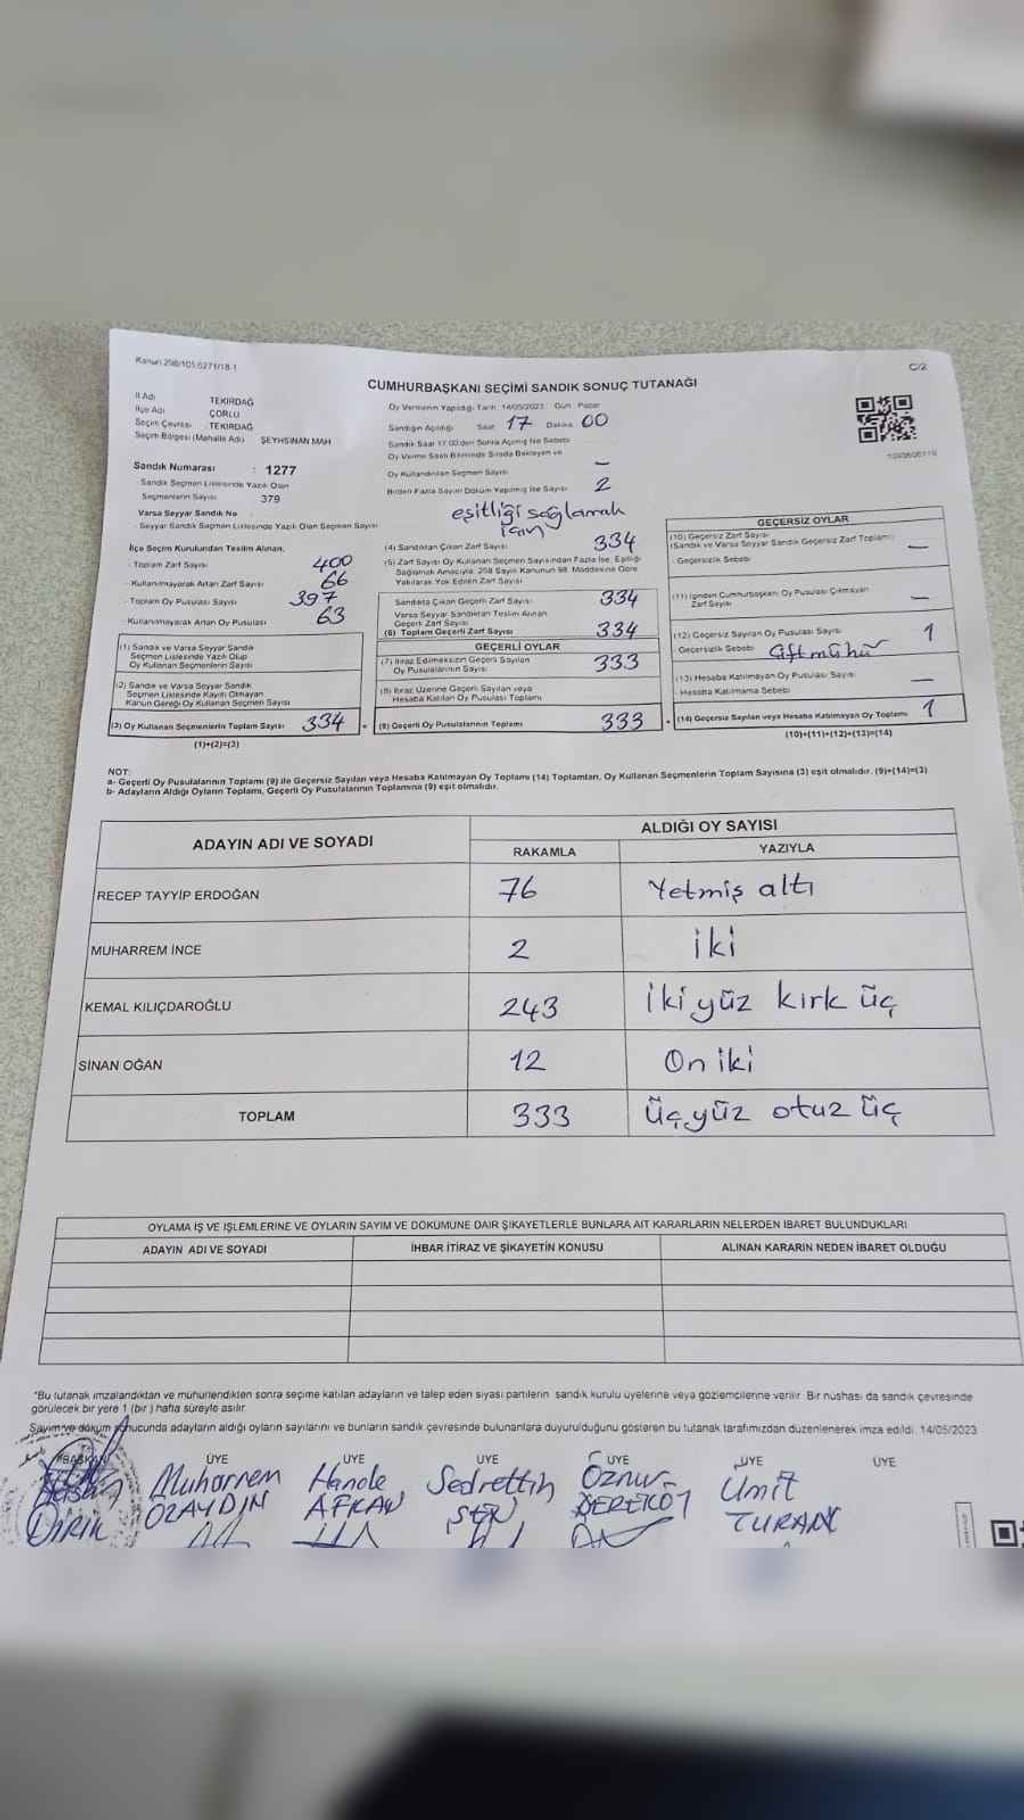 Kanun 298/105,6271/18-1
C/2
CUMHURBAŞKANI SEÇİMİ SANDIK SONUÇ TUTANAĞI
İl Adı TEKİRDAĞ
İlçe Adı ÇORLU
Seçim Çevresi TEKİRDAĞ
Seçim Bölgesi (Mahalle Adı) ŞEYHSİNAN MAH
Sandık Numarası : 1277
Sandık Seçmen Listesinde Yazılı Olan
Seçmenlerin Sayısı 379
Varsa Seyyar Sandık No
Seyyar Sandık Seçmen Listesinde Yazılı Olan Seçmen Sayısı
Oy Vermenin Yapıldığı Tarih: 14/05/2023 Gün: Pazar
Sandığın Açıldığı Saat 17 Dakika 00
Sandık Saat 17:00'den Sonra Açılmış İse Sebebi
Oy Verme Saati Bitiminde Sırada Bekleyen ve
Oy Kullandırılan Seçmen Sayısı —
Birden Fazla Sayım Döküm Yapılmış İse Sayısı 2
eşitliği sağlamak
için
İlçe Seçim Kurulundan Teslim Alınan,
- Toplam Zarf Sayısı 400
- Kullanılmayarak Artan Zarf Sayısı 66
- Toplam Oy Pusulası Sayısı 397
- Kullanılmayarak Artan Oy Pusulası 63
(1) Sandık ve Varsa Seyyar Sandık
Seçmen Listesinde Yazılı Olup
Oy Kullanan Seçmenlerin Sayısı
(2) Sandık ve Varsa Seyyar Sandık
Seçmen Listesinde Kayıtlı Olmayan
Kanun Gereği Oy Kullanan Seçmen Sayısı
(3) Oy Kullanan Seçmenlerin Toplam Sayısı 334
(1)+(2)=(3)
(4) Sandıktan Çıkan Zarf Sayısı 334
(5) Zarf Sayısı Oy Kullanan Seçmen Sayısından Fazla İse, Eşitliği
Sağlamak Amacıyla, 298 Sayılı Kanunun 98. Maddesine Göre
Yakılarak Yok Edilen Zarf Sayısı
Sandıkta Çıkan Geçerli Zarf Sayısı 334
Varsa Seyyar Sandıktan Teslim Alınan
Geçerli Zarf Sayısı
(6) Toplam Geçerli Zarf Sayısı 334
GEÇERLİ OYLAR
(7) İtiraz Edilmeksizin Geçerli Sayılan
Oy Pusulalarının Sayısı 333
(8) İtiraz Üzerine Geçerli Sayılan veya
Hesaba Katılan Oy Pusulası Toplamı
= (9) Geçerli Oy Pusulalarının Toplamı 333
GEÇERSİZ OYLAR
(10) Geçersiz Zarf Sayısı
(Sandık ve Varsa Seyyar Sandık Geçersiz Zarf Toplamı) —
Geçersizlik Sebebi
(11) İçinden Cumhurbaşkanı Oy Pusulası Çıkmayan
Zarf Sayısı —
(12) Geçersiz Sayılan Oy Pusulası Sayısı 1
Geçersizlik Sebebi Çift mühür
(13) Hesaba Katılmayan Oy Pusulası Sayısı —
Hesaba Katılmama Sebebi
+ (14) Geçersiz Sayılan veya Hesaba Katılmayan Oy Toplamı 1
(10)+(11)+(12)+(13)=(14)
NOT:
a- Geçerli Oy Pusulalarının Toplamı (9) ile Geçersiz Sayılan veya Hesaba Katılmayan Oy Toplamı (14) Toplamları, Oy Kullanan Seçmenlerin Toplam Sayısına (3) eşit olmalıdır. (9)+(14)=(3)
b- Adayların Aldığı Oyların Toplamı, Geçerli Oy Pusulalarının Toplamına (9) eşit olmalıdır.
ADAYIN ADI VE SOYADI
ALDIĞI OY SAYISI
RAKAMLA YAZIYLA
RECEP TAYYİP ERDOĞAN 76 Yetmiş altı
MUHARREM İNCE 2 iki
KEMAL KILIÇDAROĞLU 243 İki yüz kırk üç
SİNAN OĞAN 12 On iki
TOPLAM 333 Üçyüz otuz üç
OYLAMA İŞ VE İŞLEMLERİNE VE OYLARIN SAYIM VE DÖKÜMÜNE DAİR ŞİKAYETLERLE BUNLARA AİT KARARLARIN NELERDEN İBARET BULUNDUKLARI
ADAYIN ADI VE SOYADI İHBAR İTİRAZ VE ŞİKAYETİN KONUSU ALINAN KARARIN NEDEN İBARET OLDUĞU
*Bu tutanak imzalandıktan ve mühürlendikten sonra seçime katılan adayların ve talep eden siyasi partilerin sandık kurulu üyelerine veya gözlemcilerine verilir. Bir nüshası da sandık çevresinde
görülecek bir yere 1 (bir) hafta süreyle asılır.
Sayım ve döküm sonucunda adayların aldığı oyların sayılarını ve bunların sandık çevresinde bulunanlara duyurulduğunu gösteren bu tutanak tarafımızdan düzenlenerek imza edildi. 14/05/2023
BAŞKAN ÜYE ÜYE ÜYE ÜYE ÜYE ÜYE
Muharrem Hande Sedrettin Öznur Ümit
DİRİK ÖZAYDIN AFKAN ŞEN DEREKÖY TURAN